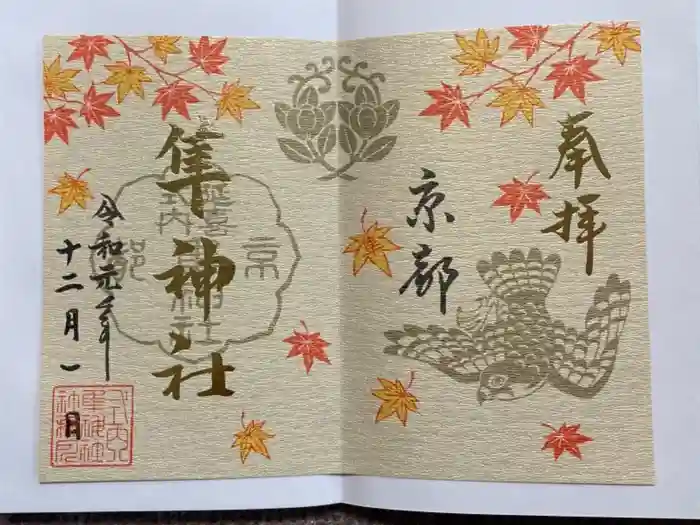 奉拝
京都
隼神社
延喜
式内
京都
隼神社
令和元年
十二月一
日